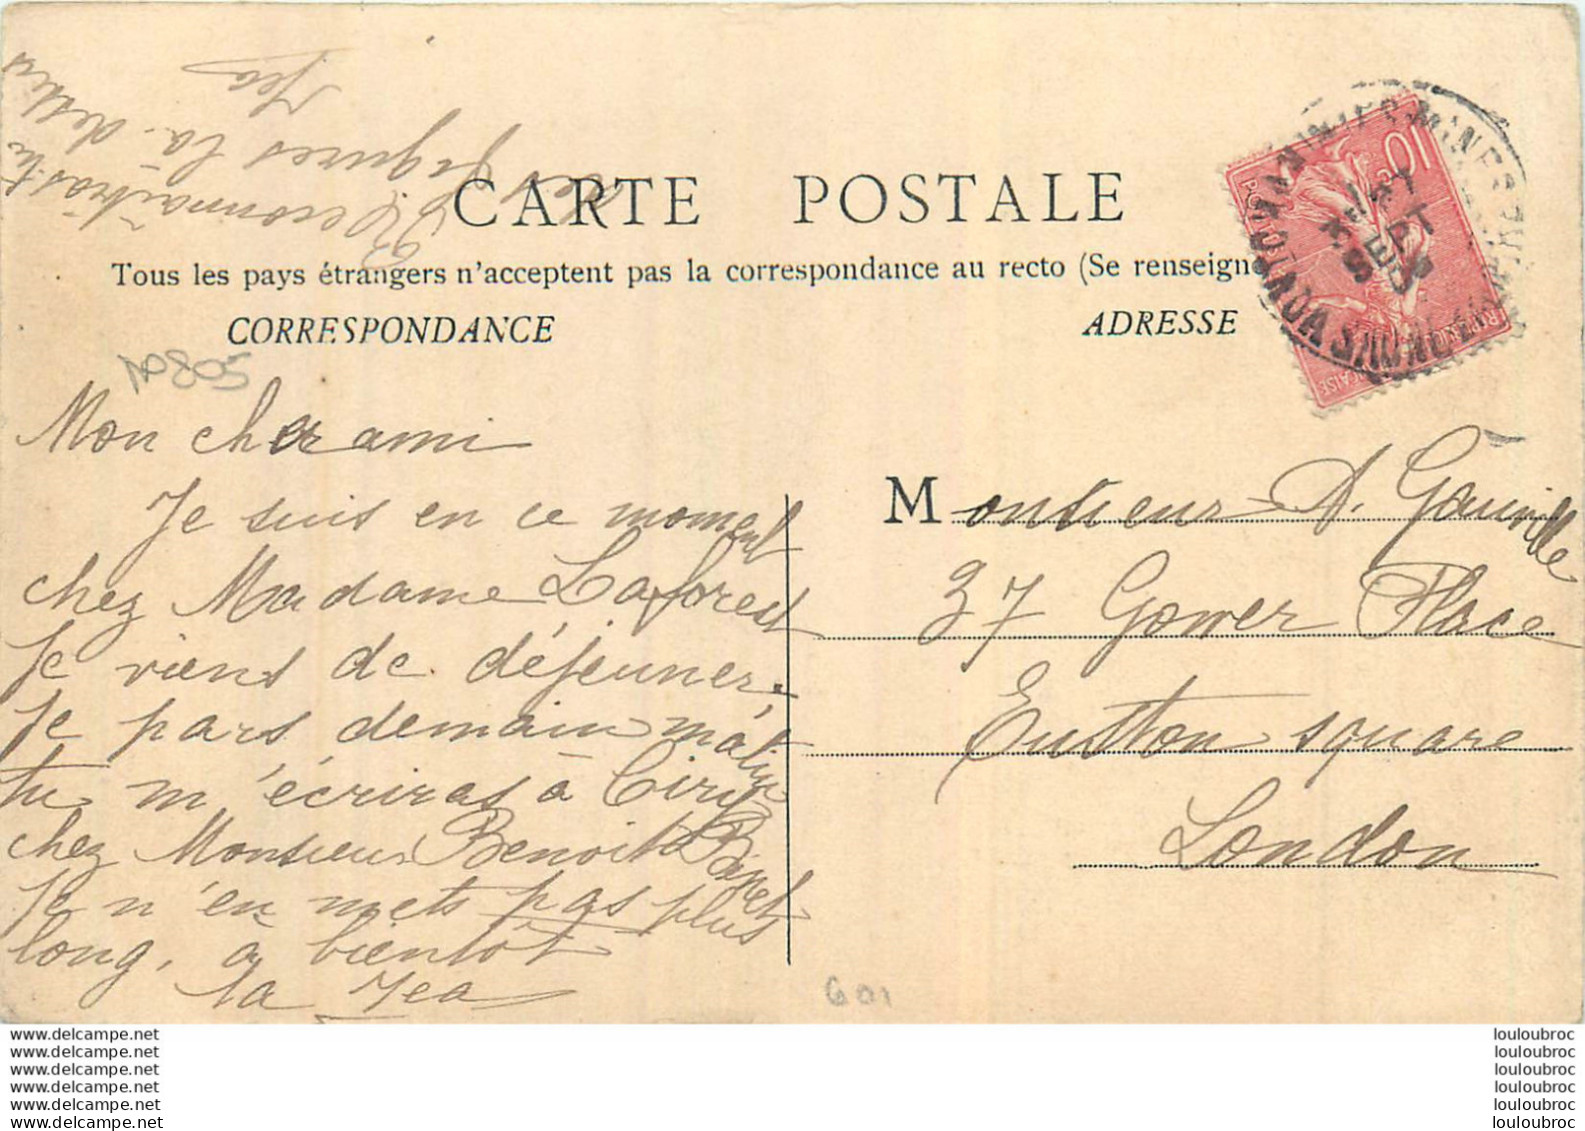 Reconnaîtras-tu
des figures là-dessus
Jea
CARTE POSTALE
Tous les pays étrangers n'acceptent pas la correspondance au recto (Se renseign
CORRESPONDANCE
ADRESSE
N°805
Mon cher ami
Je suis en ce moment
chez Madame Laforest
Je viens de déjeuner.
Je pars demain matin
tu m'écriras à Ciry
chez Monsieur Benoit Binet
Je n'en mets pas plus
long, à bientôt
ta Jea
Monsieur A. Gauville
37 Gower Place
Euston square
London
10
601
www.delcampe.com
www.delcampe.net
www.delcampe.com
www.delcampe.net
www.delcampe.com
www.delcampe.net
louloubroc
louloubroc
louloubroc
louloubroc
louloubroc
louloubroc